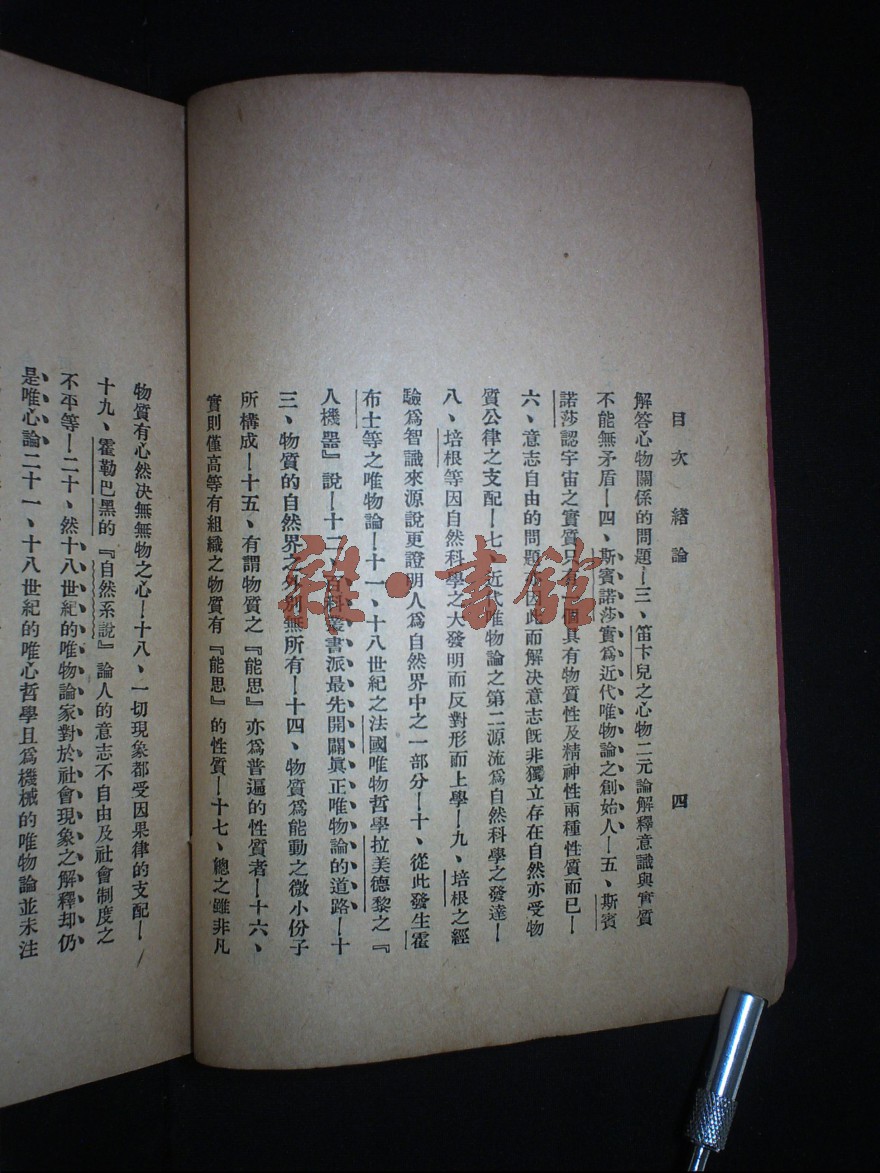 目次 緒論 四
解答心物關係的問題—三、笛卡兒之心物二元論解釋意識與實質
不能無矛盾—四、斯賓諾莎實爲近代唯物論之創始人—五、斯賓
諾莎認宇宙之實質只有一個具有物質性及精神性兩種性質而已—
六、意志自由的問題亦因此而解决意志旣非獨立存在自然亦受物
質公律之支配—七、近代唯物論之第二源流爲自然科學之發達—
八、培根等因自然科學之大發明而反對形而上學—九、培根之經
驗爲智識來源說更證明人爲自然界中之一部分—十、從此發生霍
布士等之唯物論—十一、十八世紀之法國唯物哲學拉美德黎之『
人機器』說—十二、百科叢書派最先開闢眞正唯物論的道路—十
三、物質的自然界之外別無所有—十四、物質爲能動之微小份子
所構成—十五、有謂物質之『能思』亦爲普遍的性質者—十六、
實則僅高等有組織之物質有『能思』的性質—十七、總之雖非凡
物質有心然决無無物之心—十八、一切現象都受因果律的支配—
十九、霍勒巴黑的『自然系說』論人的意志不自由及社會制度之
不平等—二十、然十八世紀的唯物論家對於社會現象之解釋却仍
是唯心論二十一、十八世紀的唯心哲學且爲機械的唯物論並未注
雜·書館